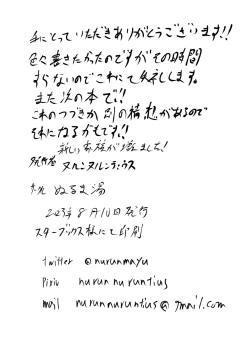 手にとっていただきありがとうございます!!
色々書きたかったのですがその時間
すらないのでこれにて失礼します。
また次の本で!!
これのつづきか別の構想があるので
それになるかもです!!
新しい家族が増えました!
発行者 ヌルンヌルンティウス
ぬるま湯
2023年8月11日発行
スターブックス様にて印刷
twitter @nurunmayu
Pixiv nurun nuruntius
mail nurunnuruntius@gmail.com